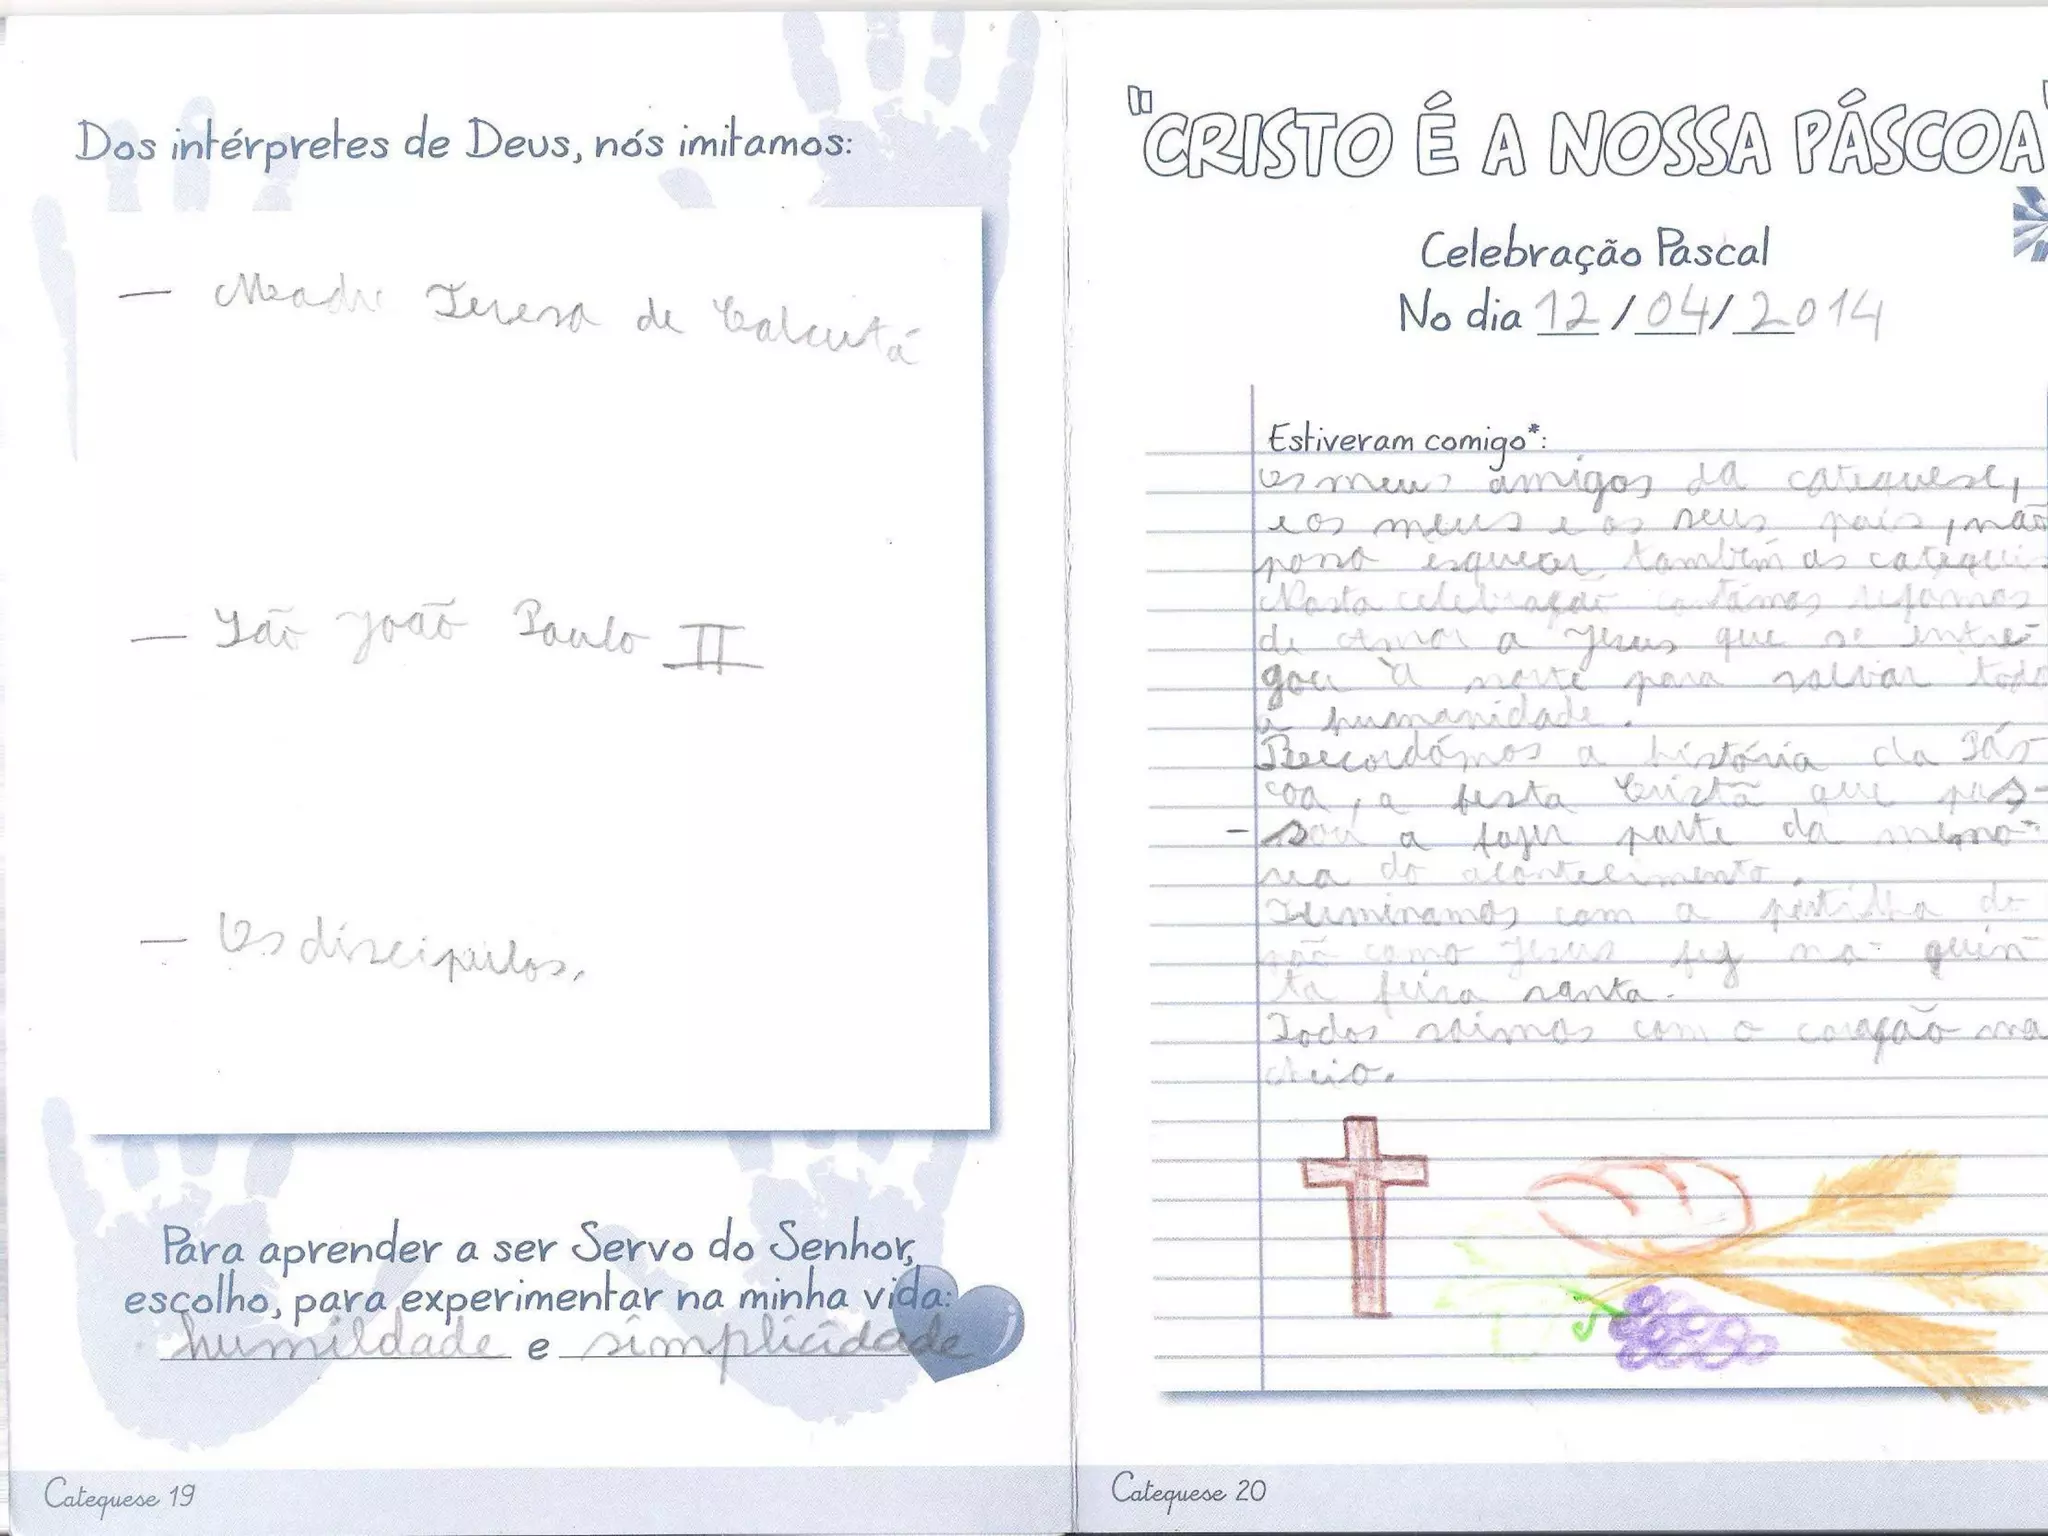 Dos intérpretes de Deus, nós imitamos:
— Madre Teresa de Calcutá
— São João Paulo II
— Os discipulos.
Para aprender a ser Servo do Senhor,
escolho, para experimentar na minha vida:
humildade e simplicidade
Catequese 19
"CRISTO É A NOSSA PÁSCOA"
Celebração Pascal
No dia 12/04/2014
Estiveram comigo*:
Os meus amigos da catequese,
e os meus e os seus pais, não
posso esquecer também os catequis
Nesta celebração cantámos
de Amor a Jesus que se entre-
gou à morte para salvar toda
a humanidade.
Recordámos a história da Pás-
coa, a festa Cristã que pas-
- sou a fazer parte da memó-
ria do acontecimento.
Terminamos com a partilha do
pão como Jesus fez na quin-
ta feira santa.
Todos saimos com o coração ma
cheio.
Catequese 20